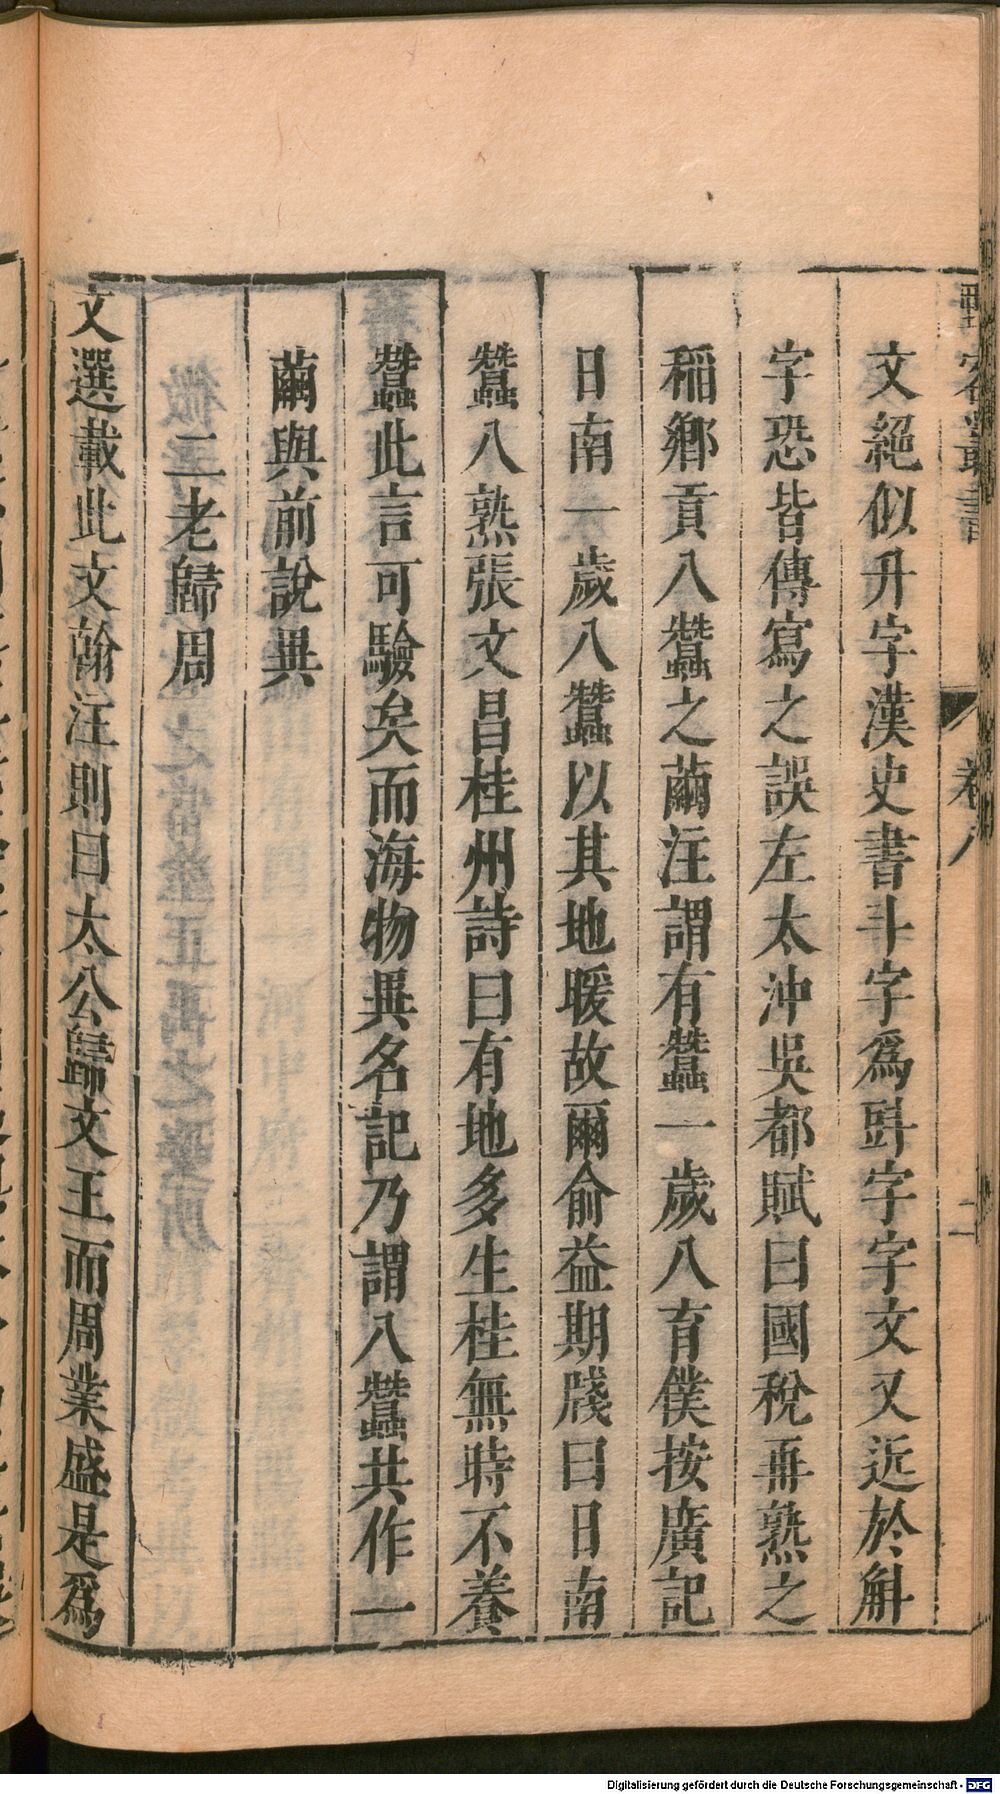 文絕似升字漢史書斗字爲㪷字字文又近於斛
字恐皆傳寫之誤左太沖吳都賦曰國稅再熟之
稻鄉貢八蠶之繭注謂有蠶一歲八育僕按廣記
日南一歲八蠶以其地暖故爾俞益期牋曰日南
蠶八熟張文昌桂州詩曰有地多生桂無時不養
蠶此言可驗矣而海物異名記乃謂八蠶共作一
繭與前說異
二老歸周
文選載此文翰注則曰太公歸文王而周業盛是爲
卷八
二
Digitalisierung gefördert durch die Deutsche Forschungsgemeinschaft - DFG